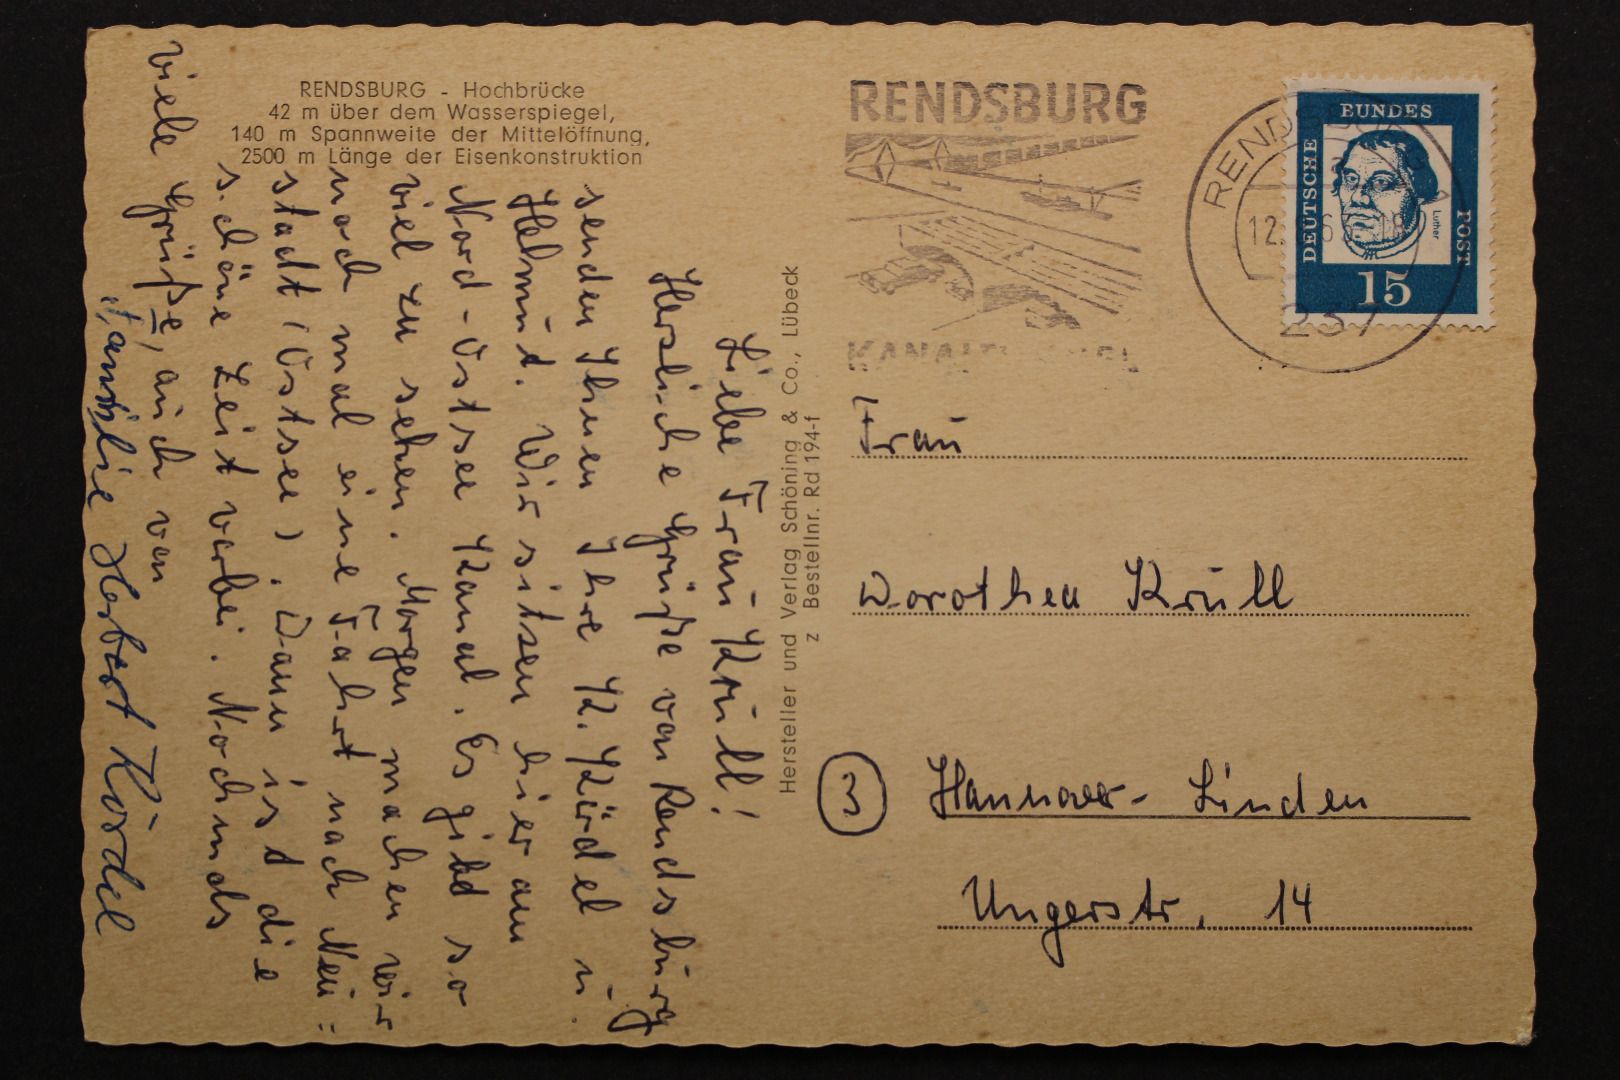 RENDSBURG - Hochbrücke
42 m über dem Wasserspiegel,
140 m Spannweite der Mittelöffnung,
2500 m Länge der Eisenkonstruktion
Liebe Frau Krull!
Herzliche Grüße von Rendsburg
senden Ihnen Ihre K. Kördel u.
Helmut. Wir sitzen hier am
Nord-Ostsee Kanal. Es gibt so
viel zu sehen. Morgen machen wir
noch mal eine Fahrt nach Neu=
stadt (Ostsee). Dann ist die
schöne Zeit vorbei. Nochmals
viele Grüße, auch von
Familie Herbert Kördel
Hersteller und Verlag Schöning & Co., Lübeck
z Bestellnr. Rd 194-f
RENDSBURG
RENDSBURG
12.
237
DEUTSCHE
BUNDES
POST
Luther
15
Frau
Dorothea Krull
3
Hannover-Linden
Ungerstr. 14